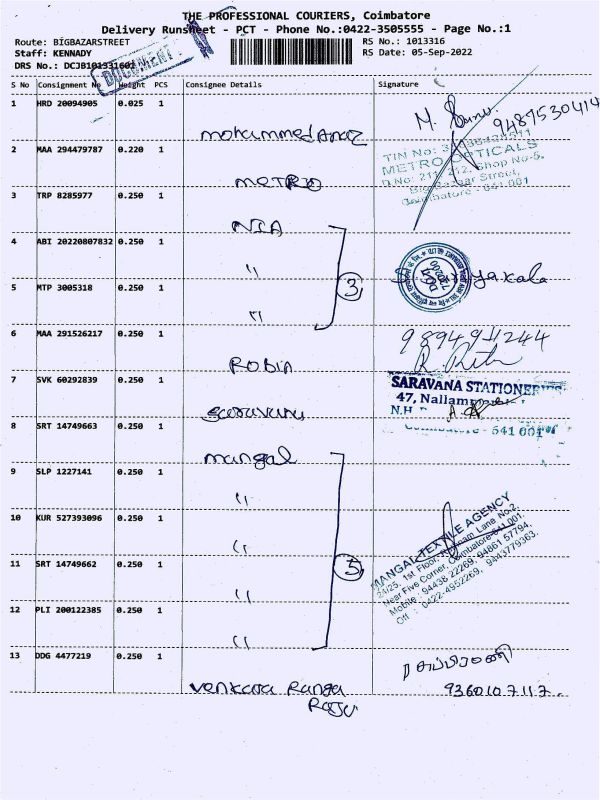 THE PROFESSIONAL COURIERS, Coimbatore
Delivery Runsheet - PCT - Phone No.:0422-3505555 - Page No.:1
Route: BIGBAZARSTREET
RS No.: 1013316
Staff: KENNADY
RS Date: 05-Sep-2022
DRS No.: DCJB101331601
DOCUMENT
S No Consignment No Weight PCS Consignee Details Signature
1 HRD 20094905 0.025 1
9487530414
mohammed Anaz
2 MAA 294479787 0.220 1
METRO OPTICALS
D.No: 211, 212, Shop No-5,
Big Bazaar Street,
Coimbatore - 641 001
METRO
3 TRP 8285977 0.250 1
NIA
4 ABI 20220807832 0.250 1
"
3
5 MTP 3005318 0.250 1
"
6 MAA 291526217 0.250 1
9894911244
ROBIA
7 SVK 60292839 0.250 1
SARAVANA STATIONERIES
47,
N.H
641 001
Saravana
8 SRT 14749663 0.250 1
mangal
9 SLP 1227141 0.250 1
"
10 KUR 527393096 0.250 1
"
5
MANGAL TEXTILE AGENCY
24/25, 1st Floor, Lane No.2,
Near Five Corner, Coimbatore-641 001.
Mobile : 94438 22269, 94861 57794,
Off : 0422-4952269, 9443779363.
11 SRT 14749662 0.250 1
"
12 PLI 200122385 0.250 1
"
13 DDG 4477219 0.250 1
9360107117
venkata Ranga
Raju